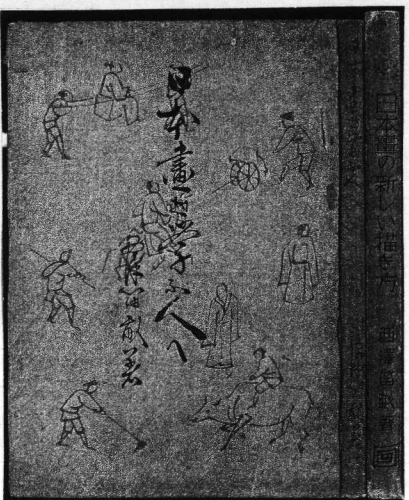 日本畫を學ぶ人へ
西澤笛畝著
日本畫の新しい描き方 西澤笛畝著